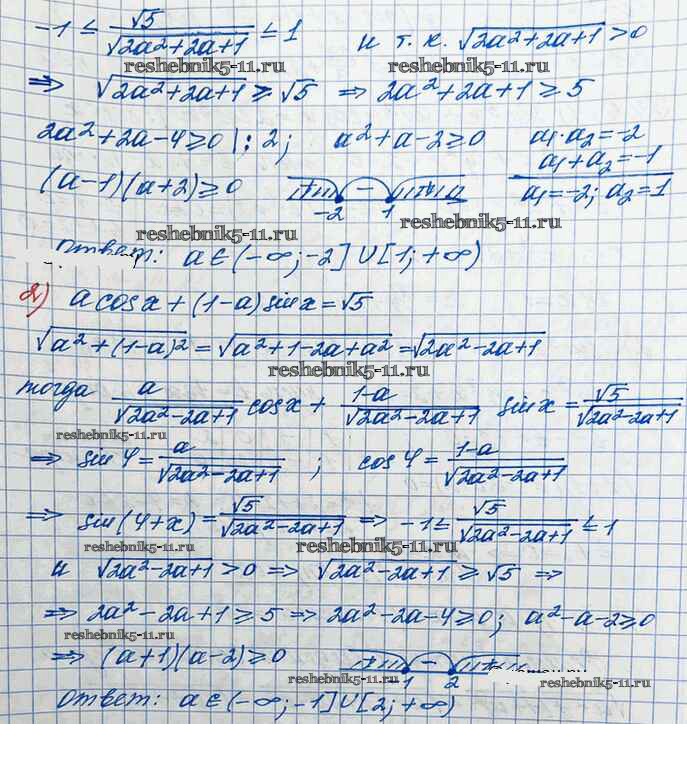 -1 ≤ √5/√(2a²+2a+1) ≤ 1 и т.к. √(2a²+2a+1) > 0
reshebnik5-11.ru reshebnik5-11.ru
⇒ √(2a²+2a+1) ≥ √5 ⇒ 2a²+2a+1 ≥ 5
2a²+2a-4 ≥ 0 |:2; a²+a-2 ≥ 0 a₁·a₂=-2
a₁+a₂=-1
(a-1)(a+2) ≥ 0 + - + -2 1 a a₁=-2; a₂=1
reshebnik5-11.ru reshebnik5-11.ru
Ответ: a ∈ (-∞; -2] ∪ [1; +∞)
2) a cos x + (1-a) sin x = √5
√(a²+(1-a)²) = √(a²+1-2a+a²) = √(2a²-2a+1)
reshebnik5-11.ru
тогда a/√(2a²-2a+1) cos x + (1-a)/√(2a²-2a+1) sin x = √5/√(2a²-2a+1)
reshebnik5-11.ru
⇒ sin φ = a/√(2a²-2a+1) ; cos φ = (1-a)/√(2a²-2a+1)
⇒ sin(φ+x) = √5/√(2a²-2a+1) ⇒ -1 ≤ √5/√(2a²-2a+1) ≤ 1
reshebnik5-11.ru reshebnik5-11.ru
и √(2a²-2a+1) > 0 ⇒ √(2a²-2a+1) ≥ √5 ⇒
⇒ 2a²-2a+1 ≥ 5 ⇒ 2a²-2a-4 ≥ 0; a²-a-2 ≥ 0
reshebnik5-11.ru
⇒ (a+1)(a-2) ≥ 0 + - + -1 2
reshebnik5-11.ru reshebnik5-11.ru
Ответ: a ∈ (-∞; -1] ∪ [2; +∞)